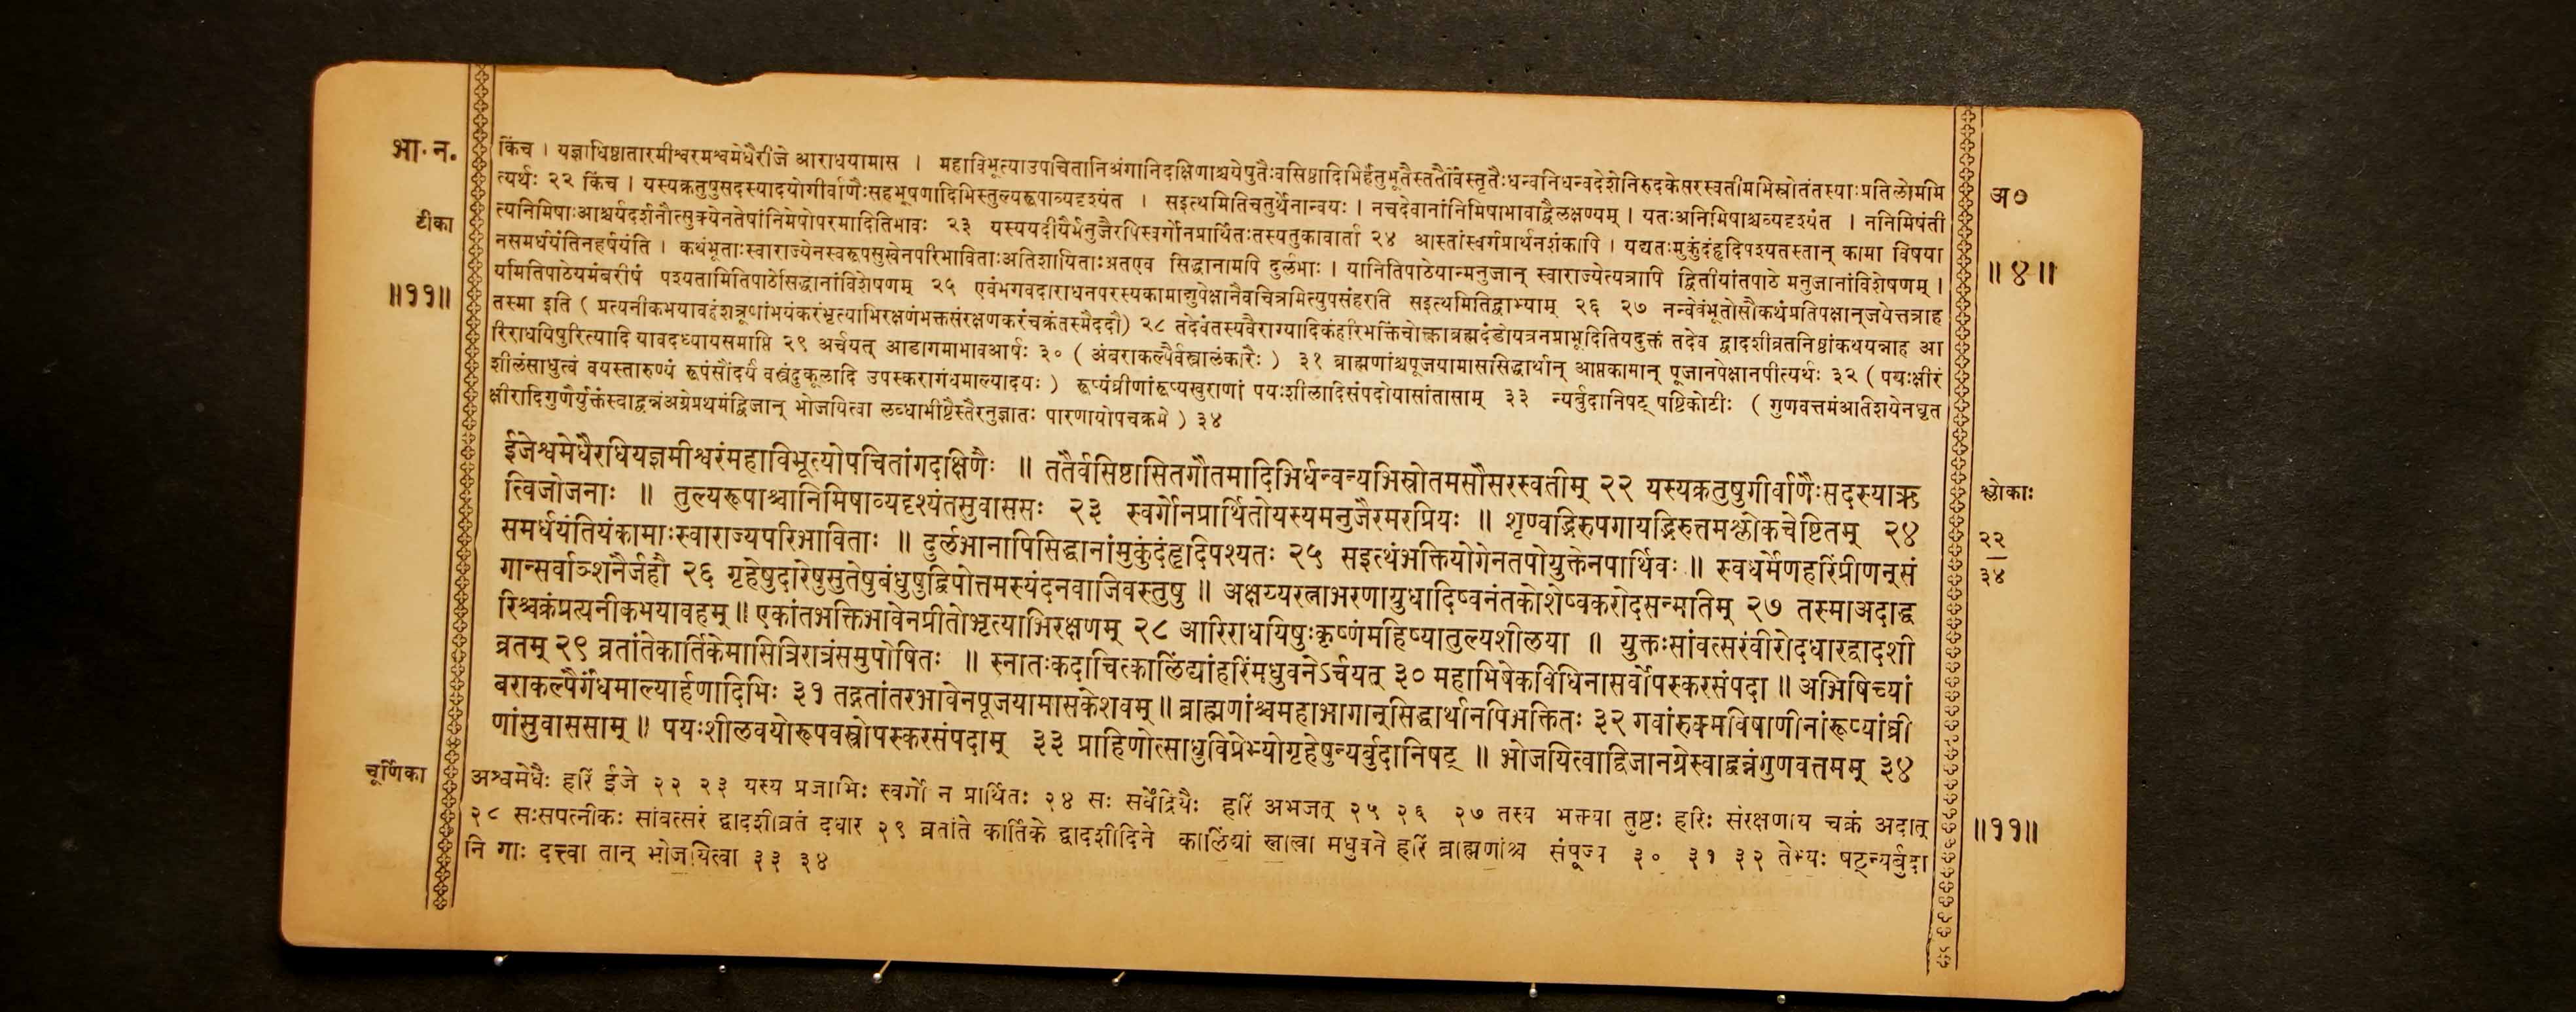 भा. न.
किंच । यज्ञाधिष्ठातारमीश्वरमश्वमेधैरीजे आराधयामास । महाविभूत्याउपचितानिअंगानिदक्षिणाश्चयेषुतैःवसिष्ठादिभिर्हेतुभूतैस्ततैर्विस्तृतैःधन्वनिधन्वदेशेनिरुदकेसरस्वतीमभिस्रोतंतस्याःप्रतिलोममि
त्यर्थः २२ किंच । यस्यक्रतुषुसदस्यादयोगीर्वाणैःसहभूषणादिभिस्तुल्यरूपाव्यदृश्यंत । सइत्थमितिचतुर्थेनान्वयः । नचदेवानांनिमिषाभावाद्वैलक्षण्यम् । यतःअनिमिषाश्चव्यदृश्यंत । ननिमिषंती
त्यनिमिषाःआश्चर्यदर्शनौत्सुक्येनतेषांनिमेषोपरमादितिभावः २३ यस्ययदीयैर्मनुजैरपिस्वर्गोनप्रार्थितःतस्यतुकावार्ता २४ आस्तांस्वर्गप्रार्थनशंकापि । यद्यतःमुकुंदंहृदिपश्यतस्तान् कामा विषया
नसमर्धयंतिनहर्षयंति । कथंभूताःस्वाराज्येनस्वरूपसुखेनपरिभाविताःअतिशायिताःअतएव सिद्धानामपि दुर्लभाः । यानितिपाठेयान्मनुजान् स्वाराज्येत्यत्रापि द्वितीयांतपाठे मनुजानांविशेषणम् ।
यमितिपाठेयमंबरीषं पश्यतामितिपाठेसिद्धानांविशेषणम् २५ एवंभगवदाराधनपरस्यकामाद्युपेक्षानैवचित्रमित्युपसंहरति सइत्थमितिद्वाभ्याम् २६ २७ नन्वेवंभूतोसौकथंप्रतिपक्षान्जयेत्तत्राह
तस्मा इति ( प्रत्यनीकभयावहंशत्रूणांभयंकरंभृत्याभिरक्षणंभक्तसंरक्षणकरंचक्रंतस्मैददौ) २८ तदेवंतस्यवैराग्यादिकंहरिभक्तिंचोक्त्वाब्रह्मदंडोयत्रनप्राभूदितियदुक्तं तदेव द्वादशीव्रतनिष्ठांकथयन्नाह आ
रिराधयिषुरित्यादि यावदध्यायसमाप्ति २९ अर्चयत् आडागमाभावआर्षः ३० ( अंबराकल्पैर्वस्त्रालंकारैः ) ३१ ब्राह्मणांश्चपूजयामाससिद्धार्थान् आप्तकामान् पूजानपेक्षानपीत्यर्थः ३२ ( पयःक्षीरं
शीलंसाधुत्वं वयस्तारुण्यं रूपंसौंदर्यं वस्त्रंदुकूलादि उपस्करागंधमाल्यादयः ) रूप्यंघ्रीणांरूप्यखुराणां पयःशीलादिसंपदोयासांतासाम् ३३ न्यर्बुदानिषट् षष्टिकोटीः ( गुणवत्तमंअतिशयेनघृत
क्षीरादिगुणैर्युक्तंस्वाद्वन्नंअग्रेप्रथमंद्विजान् भोजयित्वा लब्धाभीष्टैस्तैरनुज्ञातः पारणायोपचक्रमे ) ३४
टीका
॥११॥
अ०
॥४॥
ईजेश्वमेधैरधियज्ञमीश्वरंमहाविभूत्योपचितांगदक्षिणैः ॥ ततैर्वसिष्ठासितगौतमादिभिर्धन्वन्यभिस्रोतमसौसरस्वतीम् २२ यस्यक्रतुषुगीर्वाणैःसदस्याऋ
त्विजोजनाः ॥ तुल्यरूपाश्चानिमिषाव्यदृश्यंतसुवाससः २३ स्वर्गोनप्रार्थितोयस्यमनुजैरमरप्रियः ॥ शृण्वद्भिरुपगायद्भिरुत्तमश्लोकचेष्टितम् २४
समर्धयंतियंकामाःस्वाराज्यपरिभाविताः ॥ दुर्लभानापिसिद्धानांमुकुंदंहृदिपश्यतः २५ सइत्थंभक्तियोगेनतपोयुक्तेनपार्थिवः ॥ स्वधर्मेणहरिंप्रीणन्सं
गान्सर्वाञ्शनैर्जहौ २६ गृहेषुदारेषुसुतेषुबंधुषुद्विपोत्तमस्यंदनवाजिवस्तुषु ॥ अक्षय्यरत्नाभरणायुधादिष्वनंतकोशेष्वकरोदसन्मतिम् २७ तस्माअदाद्ध
रिश्चक्रंप्रत्यनीकभयावहम् ॥ एकांतभक्तिभावेनप्रीतोभृत्याभिरक्षणम् २८ आरिराधयिषुःकृष्णंमहिष्यातुल्यशीलया ॥ युक्तःसांवत्सरंवीरोदधारद्वादशी
व्रतम् २९ व्रतांतेकार्तिकेमासित्रिरात्रंसमुपोषितः ॥ स्नातःकदाचित्कालिंद्यांहरिंमधुवनेऽर्चयत् ३० महाभिषेकविधिनासर्वोपस्करसंपदा ॥ अभिषिच्यां
बराकल्पैर्गंधमाल्यार्हणादिभिः ३१ तद्गतांतरभावेनपूजयामासकेशवम् ॥ ब्राह्मणांश्चमहाभागान्सिद्धार्थानपिभक्तितः ३२ गवांरुक्मविषाणीनांरूप्यांघ्री
णांसुवाससाम् ॥ पयःशीलवयोरूपवस्त्रोपस्करसंपदाम् ३३ प्राहिणोत्साधुविप्रेभ्योगृहेषुन्यर्बुदानिषट् ॥ भोजयित्वाद्विजानग्रेस्वाद्वन्नंगुणवत्तमम् ३४
श्लोकाः
२२
३४
चूर्णिका
अश्वमेधैः हरिं ईजे २२ २३ यस्य प्रजाभिः स्वर्गो न प्रार्थितः २४ सः सर्वेंद्रियैः हरिं अभजत् २५ २६ २७ तस्य भक्त्या तुष्टः हरिः संरक्षणाय चक्रं अदात्
२८ सःसपत्नीकः सांवत्सरं द्वादशीव्रतं दधार २९ व्रतांते कार्तिके द्वादशीदिने कालिंद्यां स्नात्वा मधुवने हरिं ब्राह्मणांश्च संपूज्य ३० ३१ ३२ तेभ्यः षट्न्यर्बुदा
नि गाः दत्त्वा तान् भोजयित्वा ३३ ३४
॥११॥